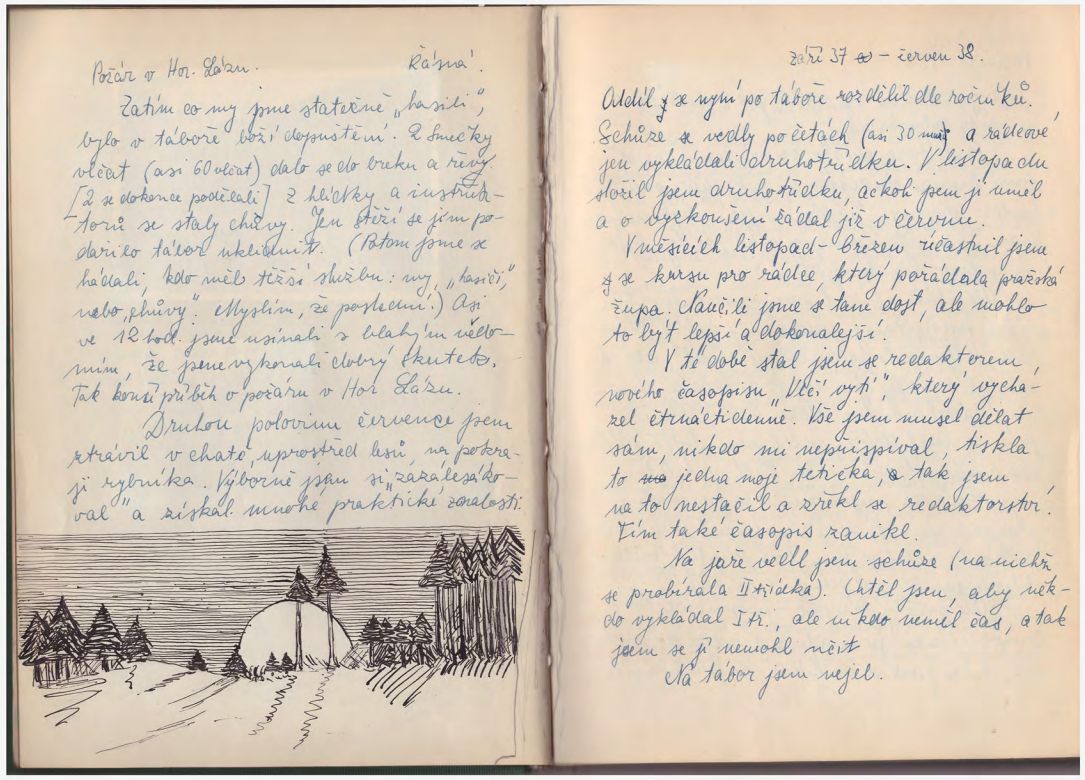 Požár v Hor. Lázu. Řásná.
Zatím co my jsme statečně „hasili",
bylo v táboře boží dopuštění. 2 smečky
vlčat (asi 60 vlčat) dalo se do breku a řevy.
[2 se dokonce podělali] Z hlídky a instruk-
torů se staly chůvy. Jen stěží se jim po-
dařilo tábor uklidnit. (Potom jsme se
hádali, kdo měl těžší službu: my, „hasiči",
nebo „chůvy". Myslím, že poslední!) Asi
ve 12 hod. jsme usínali s blahým vědo-
mím, že jsme vykonali dobrý skutek.
Tak končí příběh o požáru v Hor. Lázu.
Druhou polovinu července jsem
ztrávil v chatě, uprostřed lesů, na pokra-
ji rybníka. Výborně jsem si „zazálesáko-
val" a získal mnohé praktické znalosti.
září 37 – červen 38.
Oddíl se nyní po táboře rozdělil dle ročníků.
Schůze se vedly po četách (asi 30 mužů) a rádcové
jen vykládali druhotřídku. V listopadu
složil jsem druhotřídku, ačkoli jsem ji uměl
a o vyzkoušení žádal již v červnu.
V měsících listopad – březen účastnil jsem
se kursu pro rádce, který pořádala pražská
župa. Naučili jsme se tam dost, ale mohlo
to být lepší a dokonalejší.
V té době stal jsem se redaktorem
nového časopisu „Vlčí vytí", který vychá-
zel čtrnáctidenně. Vše jsem musel dělat
sám, nikdo mi nepřispíval, tiskla
to jedna moje tetička, a tak jsem
na to nestačil a zřekl se redaktorství.
Tím také časopis zanikl.
Na jaře vedl jsem schůze (na nichž
se probírala II třídka). Chtěl jsem, aby něk-
do vykládal I tř., ale nikdo neměl čas, a tak
jsem se jí nemohl učit
Na tábor jsem nejel.